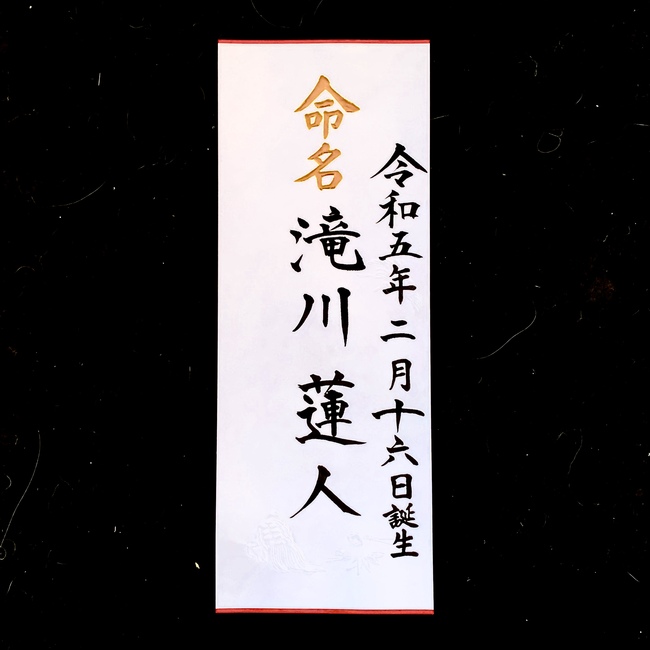 令和五年二月十六日誕生
命名 滝川蓮人